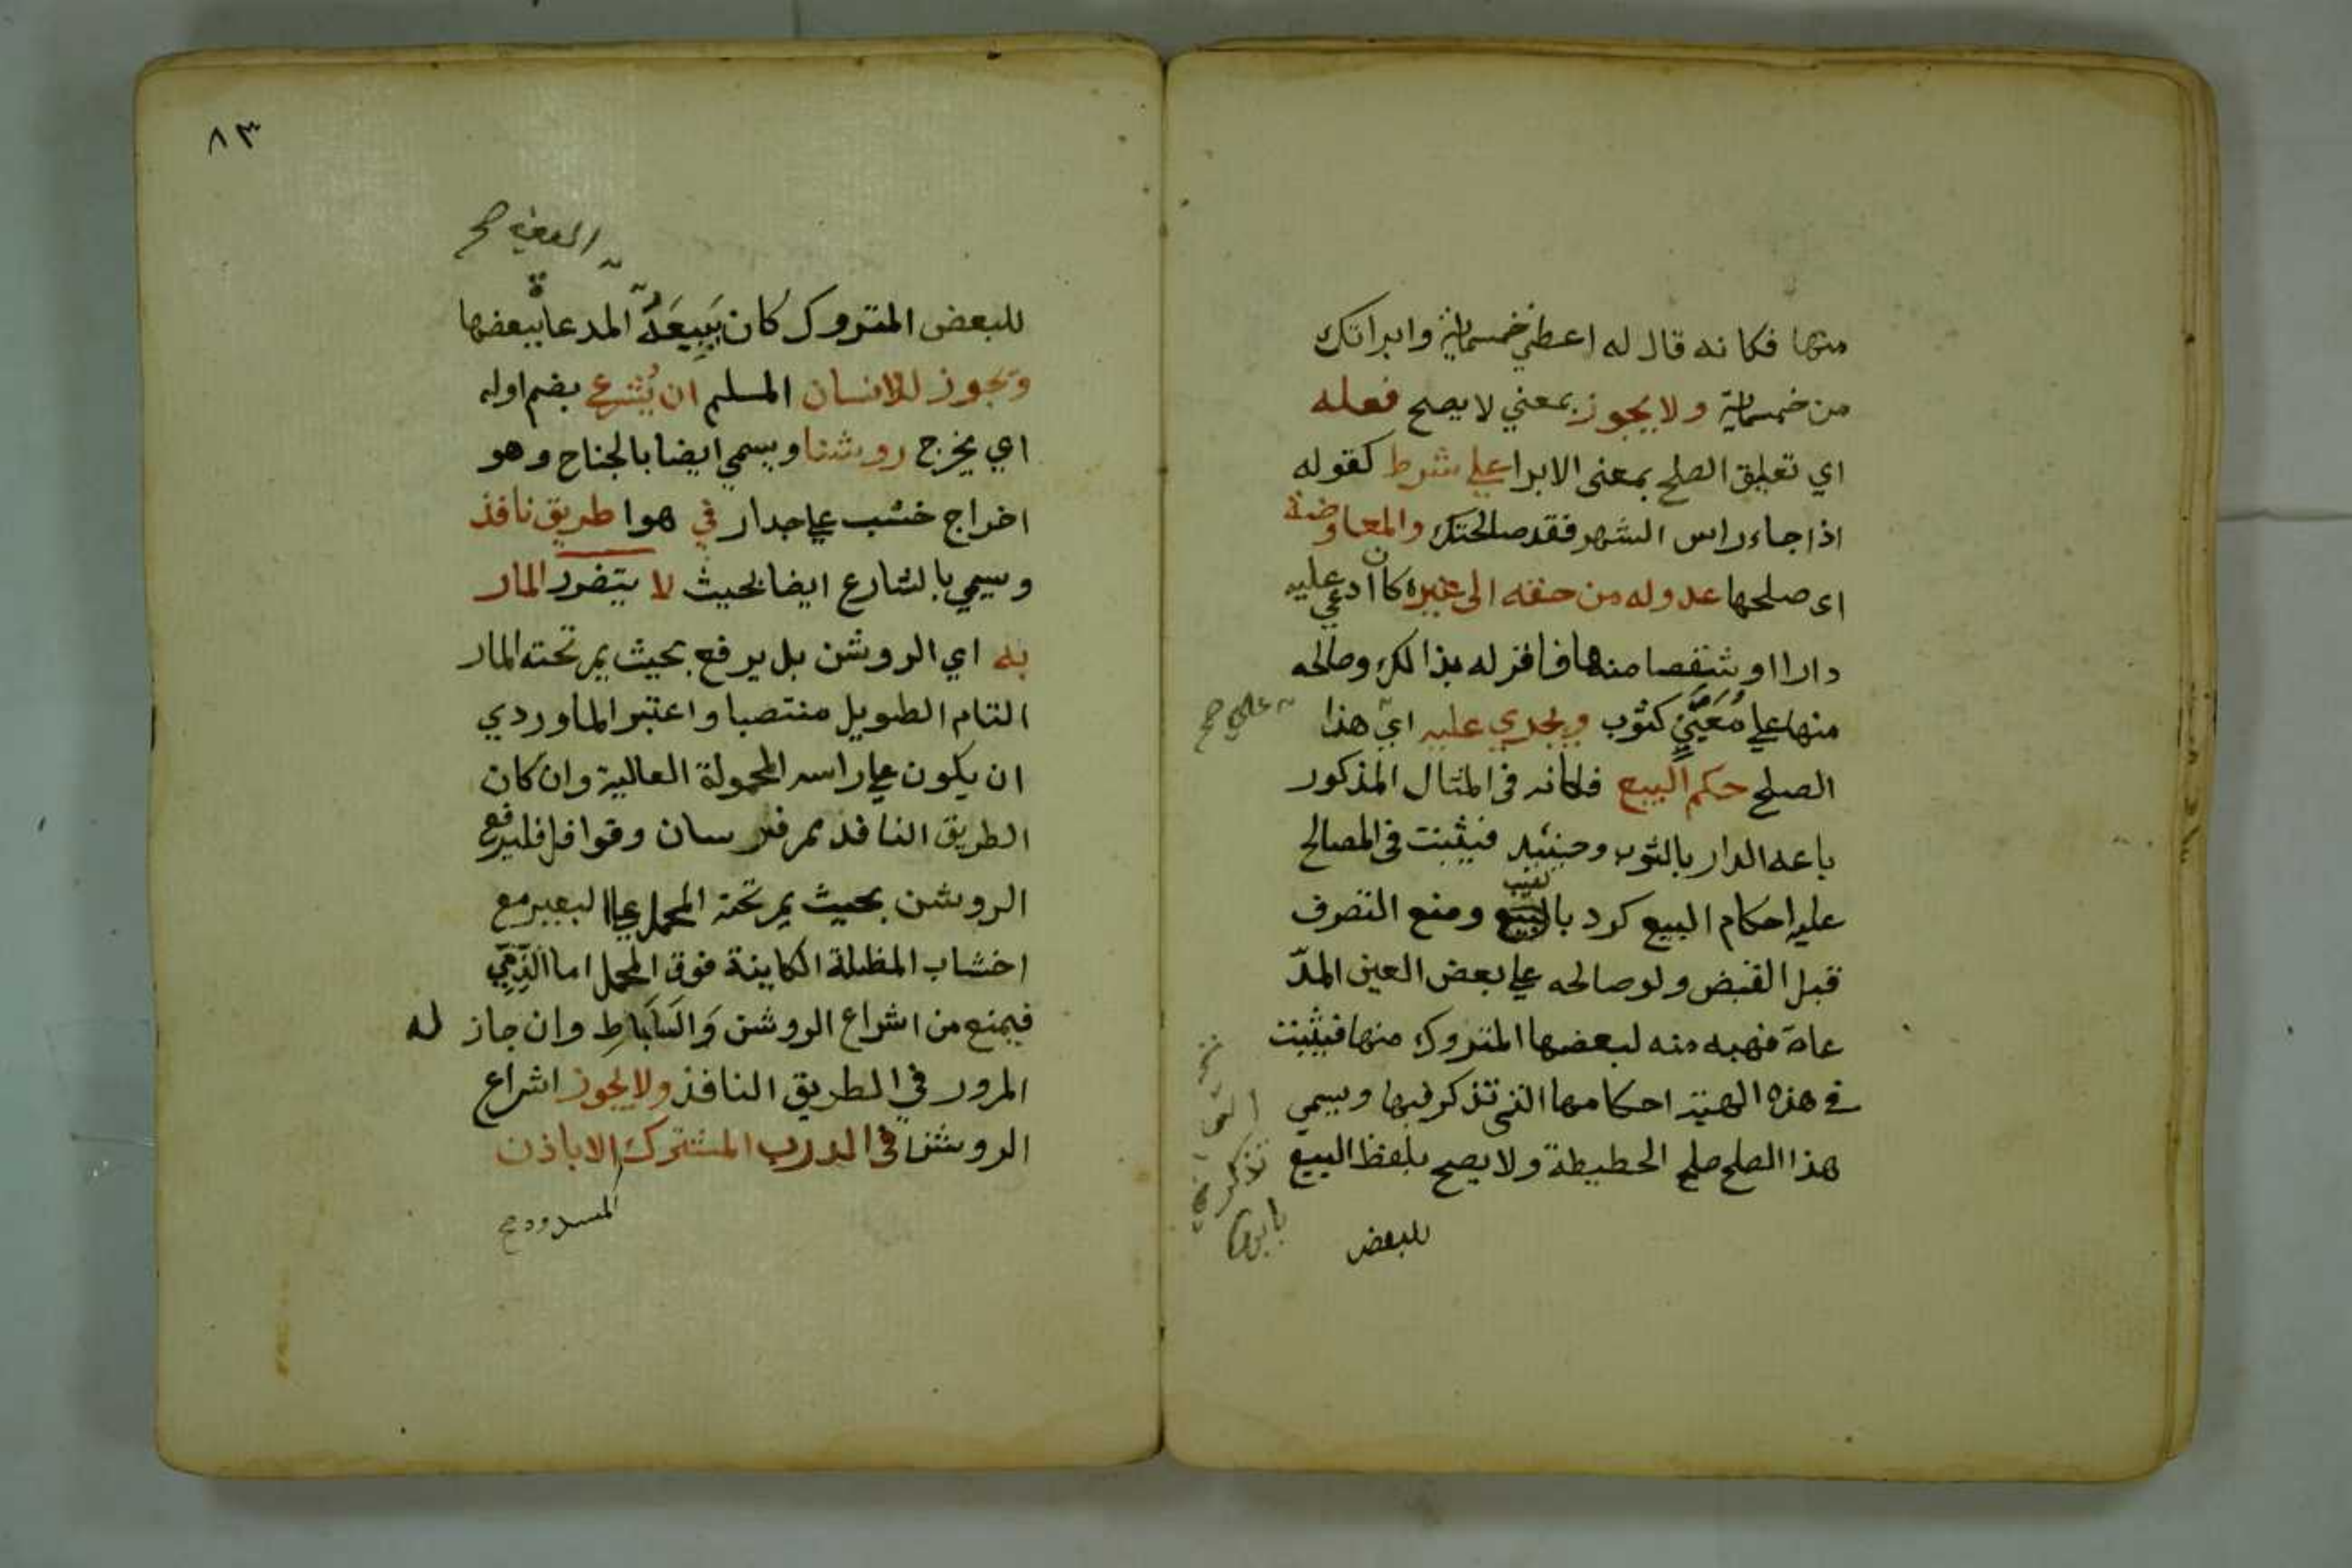 منها فكانه قال له اعطني خمسماية وابراتك
من خمسماية ولا يجوز بمعني لا يصح فعله
اي تعليق الصلح بمعنى الابرا علي شرط كقوله
اذا جاء راس الشهر فقد صالحتك والمعاوضة
اى صلحها عدوله من حقه الى غيره كان ادعي عليه
دارا او شقصا منها فاقر له بذالك وصالحه
منها علي مُعَيَّنٍ كثوب ويجري عليه اي هذا
علي صح
الصلح حكم البيع فكانه في المثال المذكور
باعه الدار بالثوب وحينئيد فيثبت في المصالح
عليه احكام البيع كرد بالعيب ومنع التصرف
قبل القبض ولو صالحه علي بعض العين المدّ
عاة فهبه منه لبعضها المتروك منها فيثبت
في هذه الهبة احكامها التي تذكر فيها ويسمي
هذا الصلح صلح الحطيطة ولا يصح بلفظ البيع
التي تذكر في بابها
للبعض
٨٣
العين صح
للبعض المتروك كان يَبِيعَهُ المدعاة ببعضها
ويجوز للانسان المسلم ان يُشرع بضم اوله
اي يخرج روشنا ويسمي ايضا بالجناح وهو
اخراج خشب علي جدار في هوا طريق نافذ
ويسمي بالشارع ايضا بحيث لا يتضرر المار
به اي الروشن بل يرفع بحيث يمر تحته المار
التام الطويل منتصبا واعتبر الماوردي
ان يكون علي راسه المحمولة العالية وان كان
الطريق النافذ ممر فرسان وقوافل فليرفع
الروشن بحيث يمر تحته المحمل علي البعير مع
اخشاب المظلة الكاينة فوق المحمل اما الذِّمِّي
فيمنع من اشراع الروشن وَالسَابَاطِ وان جاز له
المرور في الطريق النافذ ولا يجوز اشراع
الروشن في الدرب المشترك الا باذن